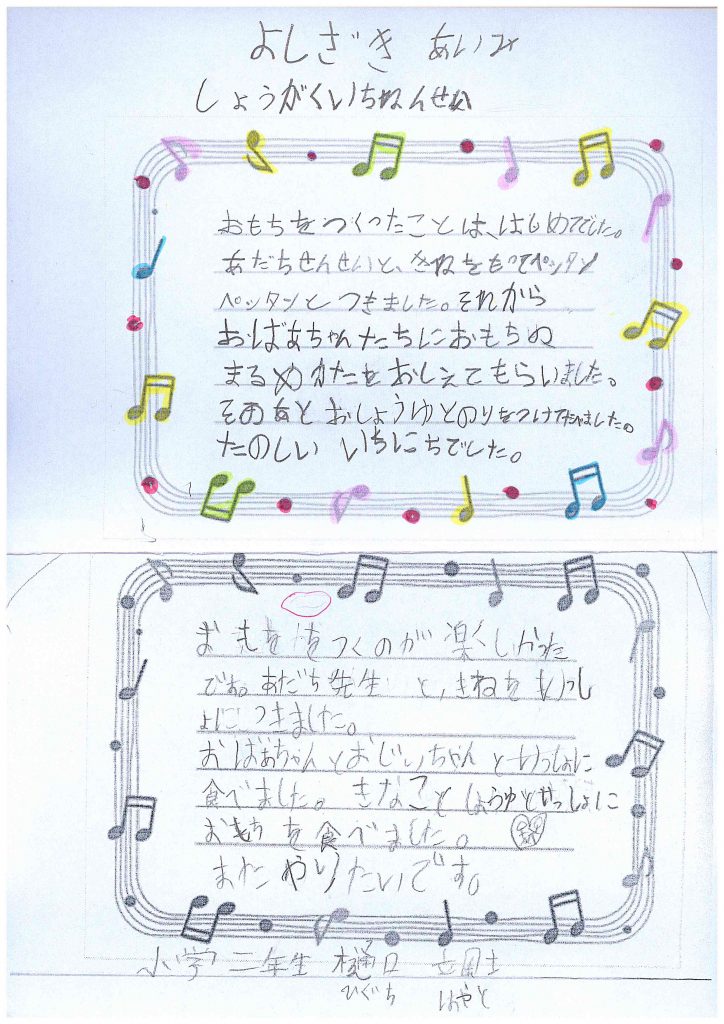 よしざき あいみ
しょうがくいちねんせい
おもちをつくったことは、はじめてでした。
あだちせんせいと、きねをもってペッタン
ペッタンとつきました。それから
おばあちゃんたちにおもちぬ
まるめかたをおしえてもらいました。
そのあとおしょうゆとのりをつけてたべました。
たのしいいちにちでした。
おもちをつくのが楽しかった
です。あだち先生と、きねをもっし
ょにつきました。
おばあちゃんとおじいちゃんといっしょに
食べました。きなことしょうゆといっしょに
おもちを食べました。
またやりたいです。
小学二年生 樋口
ひぐち はやと